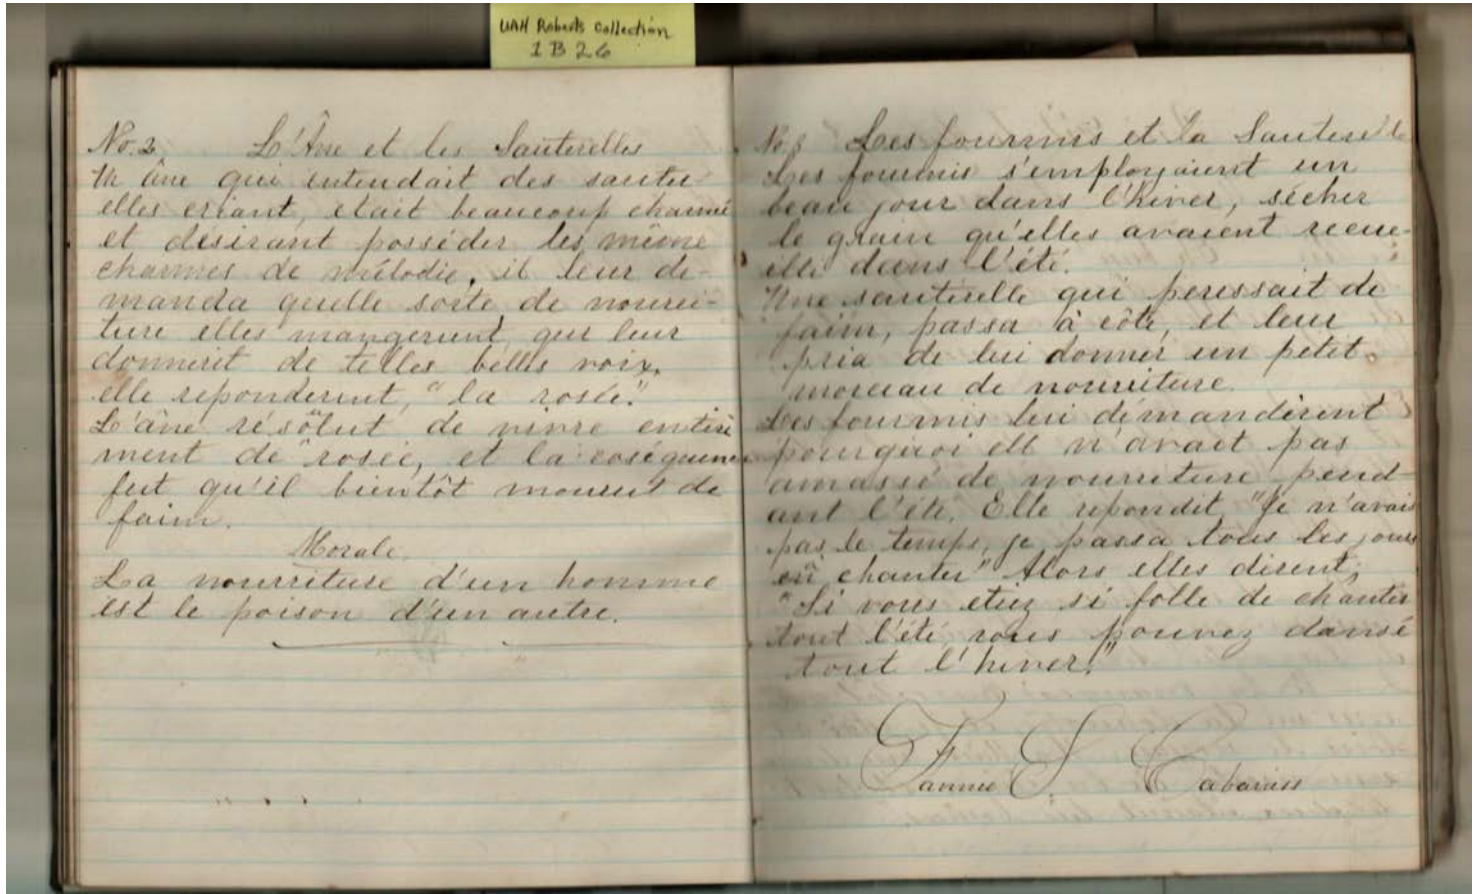 UAH Roberts Collection
1 B 26
No. 2. L'Âne et les Sauterelles
Un âne qui entendait des sauter
elles criant, etait beaucoup charmé
et désirant posséder les même
charmes de mélodie, il leur de-
manda quelle sorte de nourri-
ture elles mangerent, qui leur
donneret de telles belles voix,
elle reponderent, "la rosée."
L'âne résolut de vivre entiré
ment de rosée, et la coséquence
fut qu'il bientôt mourut de
faim.
Morale.
La nourriture d'un homme
est le poison d'un autre.
No. 3 Les fourmis et la Sauterelle
Les fourmis s'employaient un
beau jour dans l'hiver, sécher
le grain qu'elles avaient recue-
illi dans l'été.
Une sauterelle qui peressait de
faim, passa à côté, et leur
pria de lui donner un petit
morceau de nourriture.
Les fourmis lui démandèrent
pourquoi ell n'avait pas
amassé de nourriture pend-
ant l'été. Elle repondit, "Je n'avais
pas le temps, je passa tous les jours
en chanter" Alors elles dirent,
"Si vous etiez si folle de chanter
tout l'été, vous pouvez dansé
tout l'hiver."
Fannie S. Cabaniss